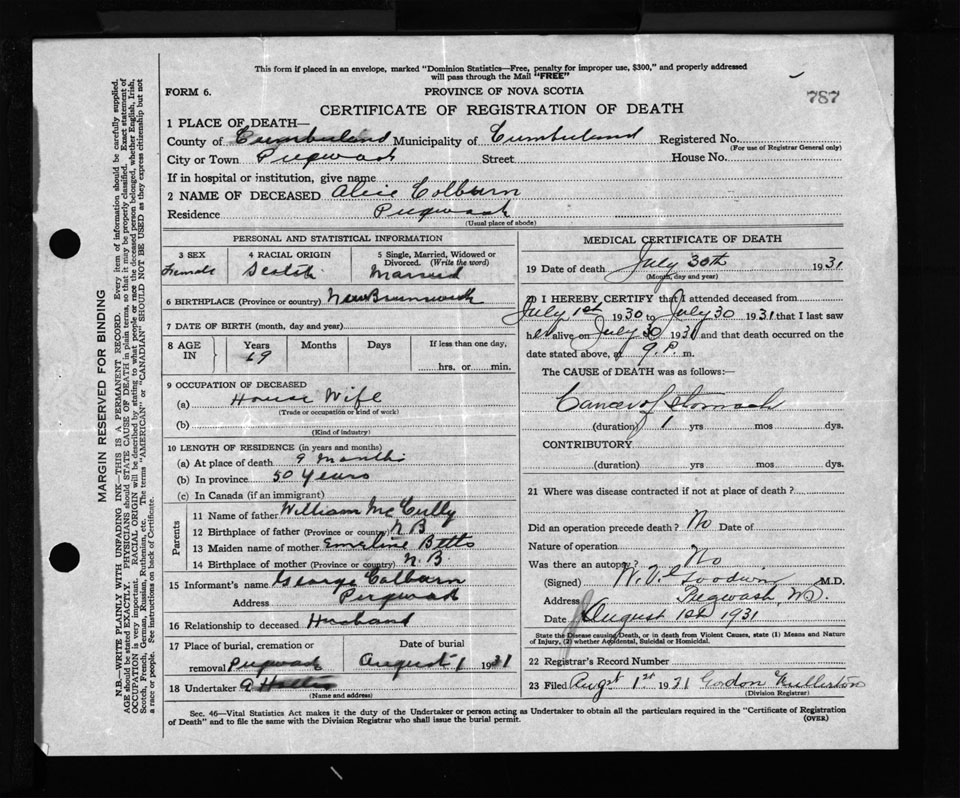 This form if placed in an envelope, marked "Dominion Statistics—Free, penalty for improper use, $300," and properly addressed
will pass through the Mail "FREE"
FORM 6.
PROVINCE OF NOVA SCOTIA
787
CERTIFICATE OF REGISTRATION OF DEATH
1 PLACE OF DEATH—
County of Cumberland Municipality of Cumberland Registered No.
(For use of Registrar General only)
City or Town Pugwash Street House No.
If in hospital or institution, give name
2 NAME OF DECEASED Alice Colburn
Residence Pugwash
(Usual place of abode)
PERSONAL AND STATISTICAL INFORMATION
3 SEX 4 RACIAL ORIGIN 5 Single, Married, Widowed or
Divorced. (Write the word)
Female Scotch Married
6 BIRTHPLACE (Province or country) New Brunswick
7 DATE OF BIRTH (month, day and year)
8 AGE IN Years Months Days If less than one day,
69 hrs. or min.
9 OCCUPATION OF DECEASED
(a) House Wife
(Trade or occupation or kind of work)
(b)
(Kind of industry)
10 LENGTH OF RESIDENCE (in years and months)
(a) At place of death 9 Months
(b) In province 50 Years
(c) In Canada (if an immigrant)
Parents
11 Name of father William McCully
12 Birthplace of father (Province or country) N B
13 Maiden name of mother Emeline Betts
14 Birthplace of mother (Province or country) N. B
15 Informant's name George Colburn
Address Pugwash
16 Relationship to deceased Husband
17 Place of burial, cremation or
removal Pugwash
Date of burial
August 1 1931
18 Undertaker A
(Name and address)
MEDICAL CERTIFICATE OF DEATH
19 Date of death July 30th 1931
(Month, day and year)
20 I HEREBY CERTIFY that I attended deceased from
July 1st 1930 to July 30 1931 that I last saw
her alive on July 30 1931 and that death occurred on the
date stated above, at 9 P. m.
The CAUSE of DEATH was as follows:—
Cancer of Stomach
(duration) 1 yrs mos dys.
CONTRIBUTORY
(duration) yrs mos dys.
21 Where was disease contracted if not at place of death?
Did an operation precede death? No Date of
Nature of operation
Was there an autopsy? No
(Signed) Goodwin M.D.
Address Pugwash, N.S.
Date August 1st 1931
State the Disease causing Death, or in death from Violent Causes, state (1) Means and Nature
of Injury, (2) whether Accidental, Suicidal or Homicidal.
22 Registrar's Record Number
23 Filed Augst 1st 1931 Godon Fullerton
(Division Registrar)
Sec. 46—Vital Statistics Act makes it the duty of the Undertaker or person acting as Undertaker to obtain all the particulars required in the "Certificate of Registration
of Death" and to file the same with the Division Registrar who shall issue the burial permit.
(OVER)
MARGIN RESERVED FOR BINDING
N.B.—WRITE PLAINLY WITH UNFADING INK—THIS IS A PERMANENT RECORD. Every item of information should be carefully supplied.
AGE should be stated EXACTLY. PHYSICIANS should STATE CAUSE OF DEATH in plain terms, so that it may be properly classified. Exact statement of
OCCUPATION is very important. RACIAL ORIGIN will be described by stating to what people or race the deceased person belonged, whether English, Irish,
Scotch, French, German, Russian, Ruthenian, etc. The terms "AMERICAN" or "CANADIAN" SHOULD NOT BE USED as they express citizenship but not
a race or people. See instructions on back of Certificate.